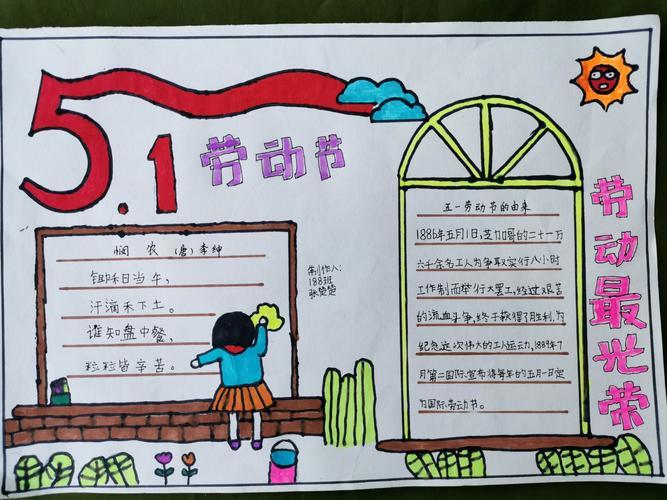 5.1 劳动节
悯 农 (唐) 李绅
锄禾日当午,
汗滴禾下土。
谁知盘中餐,
粒粒皆辛苦。
制作人:
188班
五一劳动节的由来
1886年五月1日,芝加哥的二十一万
六千余名工人为争取实行八小时
工作制而举行大罢工,经过艰苦
的流血斗争,终于获得了胜利,为
纪念这次伟大的工人运动,1889年7
月第二国际宣布将每年的五月一日定
为国际劳动节。
劳动最光荣